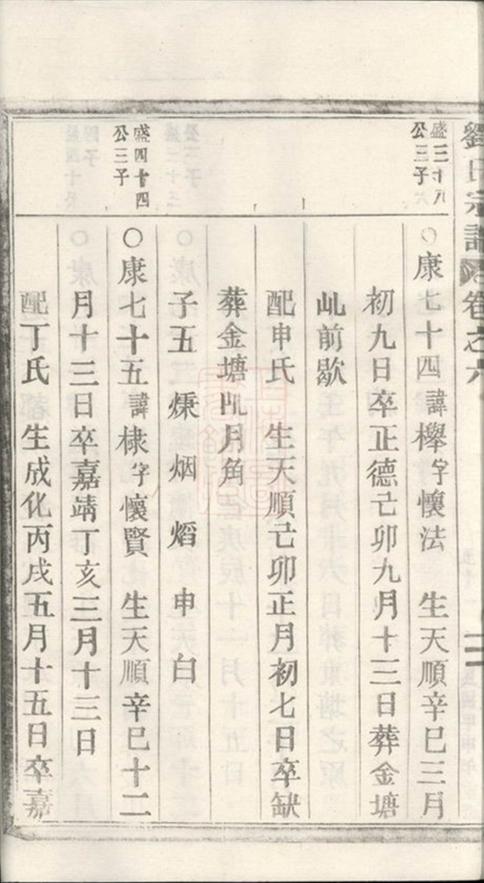 劉氏宗譜 卷之六
公三子
○康七十四諱櫸字懷法 生天順辛巳三月
初九日卒正德己卯九月十三日葬金塘
屾前歇
配申氏 生天順己卯正月初七日卒缺
葬金塘屾月角
子五 烟 熖 申 白
盛四十四
公三子
○康七十五諱棣字懷賢 生天順辛巳十二
月十三日卒嘉靖丁亥三月十三日
配丁氏 生成化丙戌五月十五日卒嘉